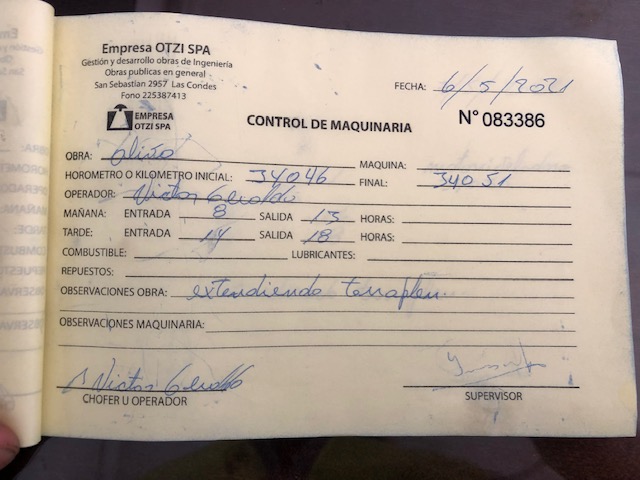 Empresa OTZI SPA
Gestión y desarrollo obras de Ingeniería
Obras públicas en general
San Sebastián 2957 Las Condes
Fono 225387413
FECHA: 6/5/2021
EMPRESA
OTZI SPA
CONTROL DE MAQUINARIA
N° 083386
OBRA:
MAQUINA:
HOROMETRO O KILOMETRO INICIAL: 34046 FINAL: 34051
OPERADOR: Victor
MAÑANA: ENTRADA 8 SALIDA 13 HORAS:
TARDE: ENTRADA 14 SALIDA 18 HORAS:
COMBUSTIBLE: LUBRICANTES:
REPUESTOS:
OBSERVACIONES OBRA: extendiendo terraplen.
OBSERVACIONES MAQUINARIA:
Victor
CHOFER U OPERADOR
SUPERVISOR